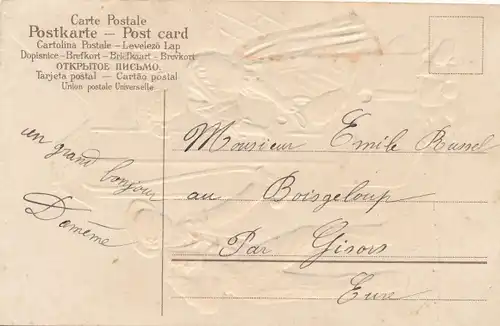 Carte Postale
Postkarte – Post card
Cartolina Postale – Levelező Lap
Dopisnice – Brefkort – Briefkaart – Brevkort
ОТКРЫТОЕ ПИСЬМО.
Tarjeta postal – Cartão postal
Union postale Universelle
un grand bonjour
Monsieur Emile Russel
au Boisgeloup
Par Gisors
Eure